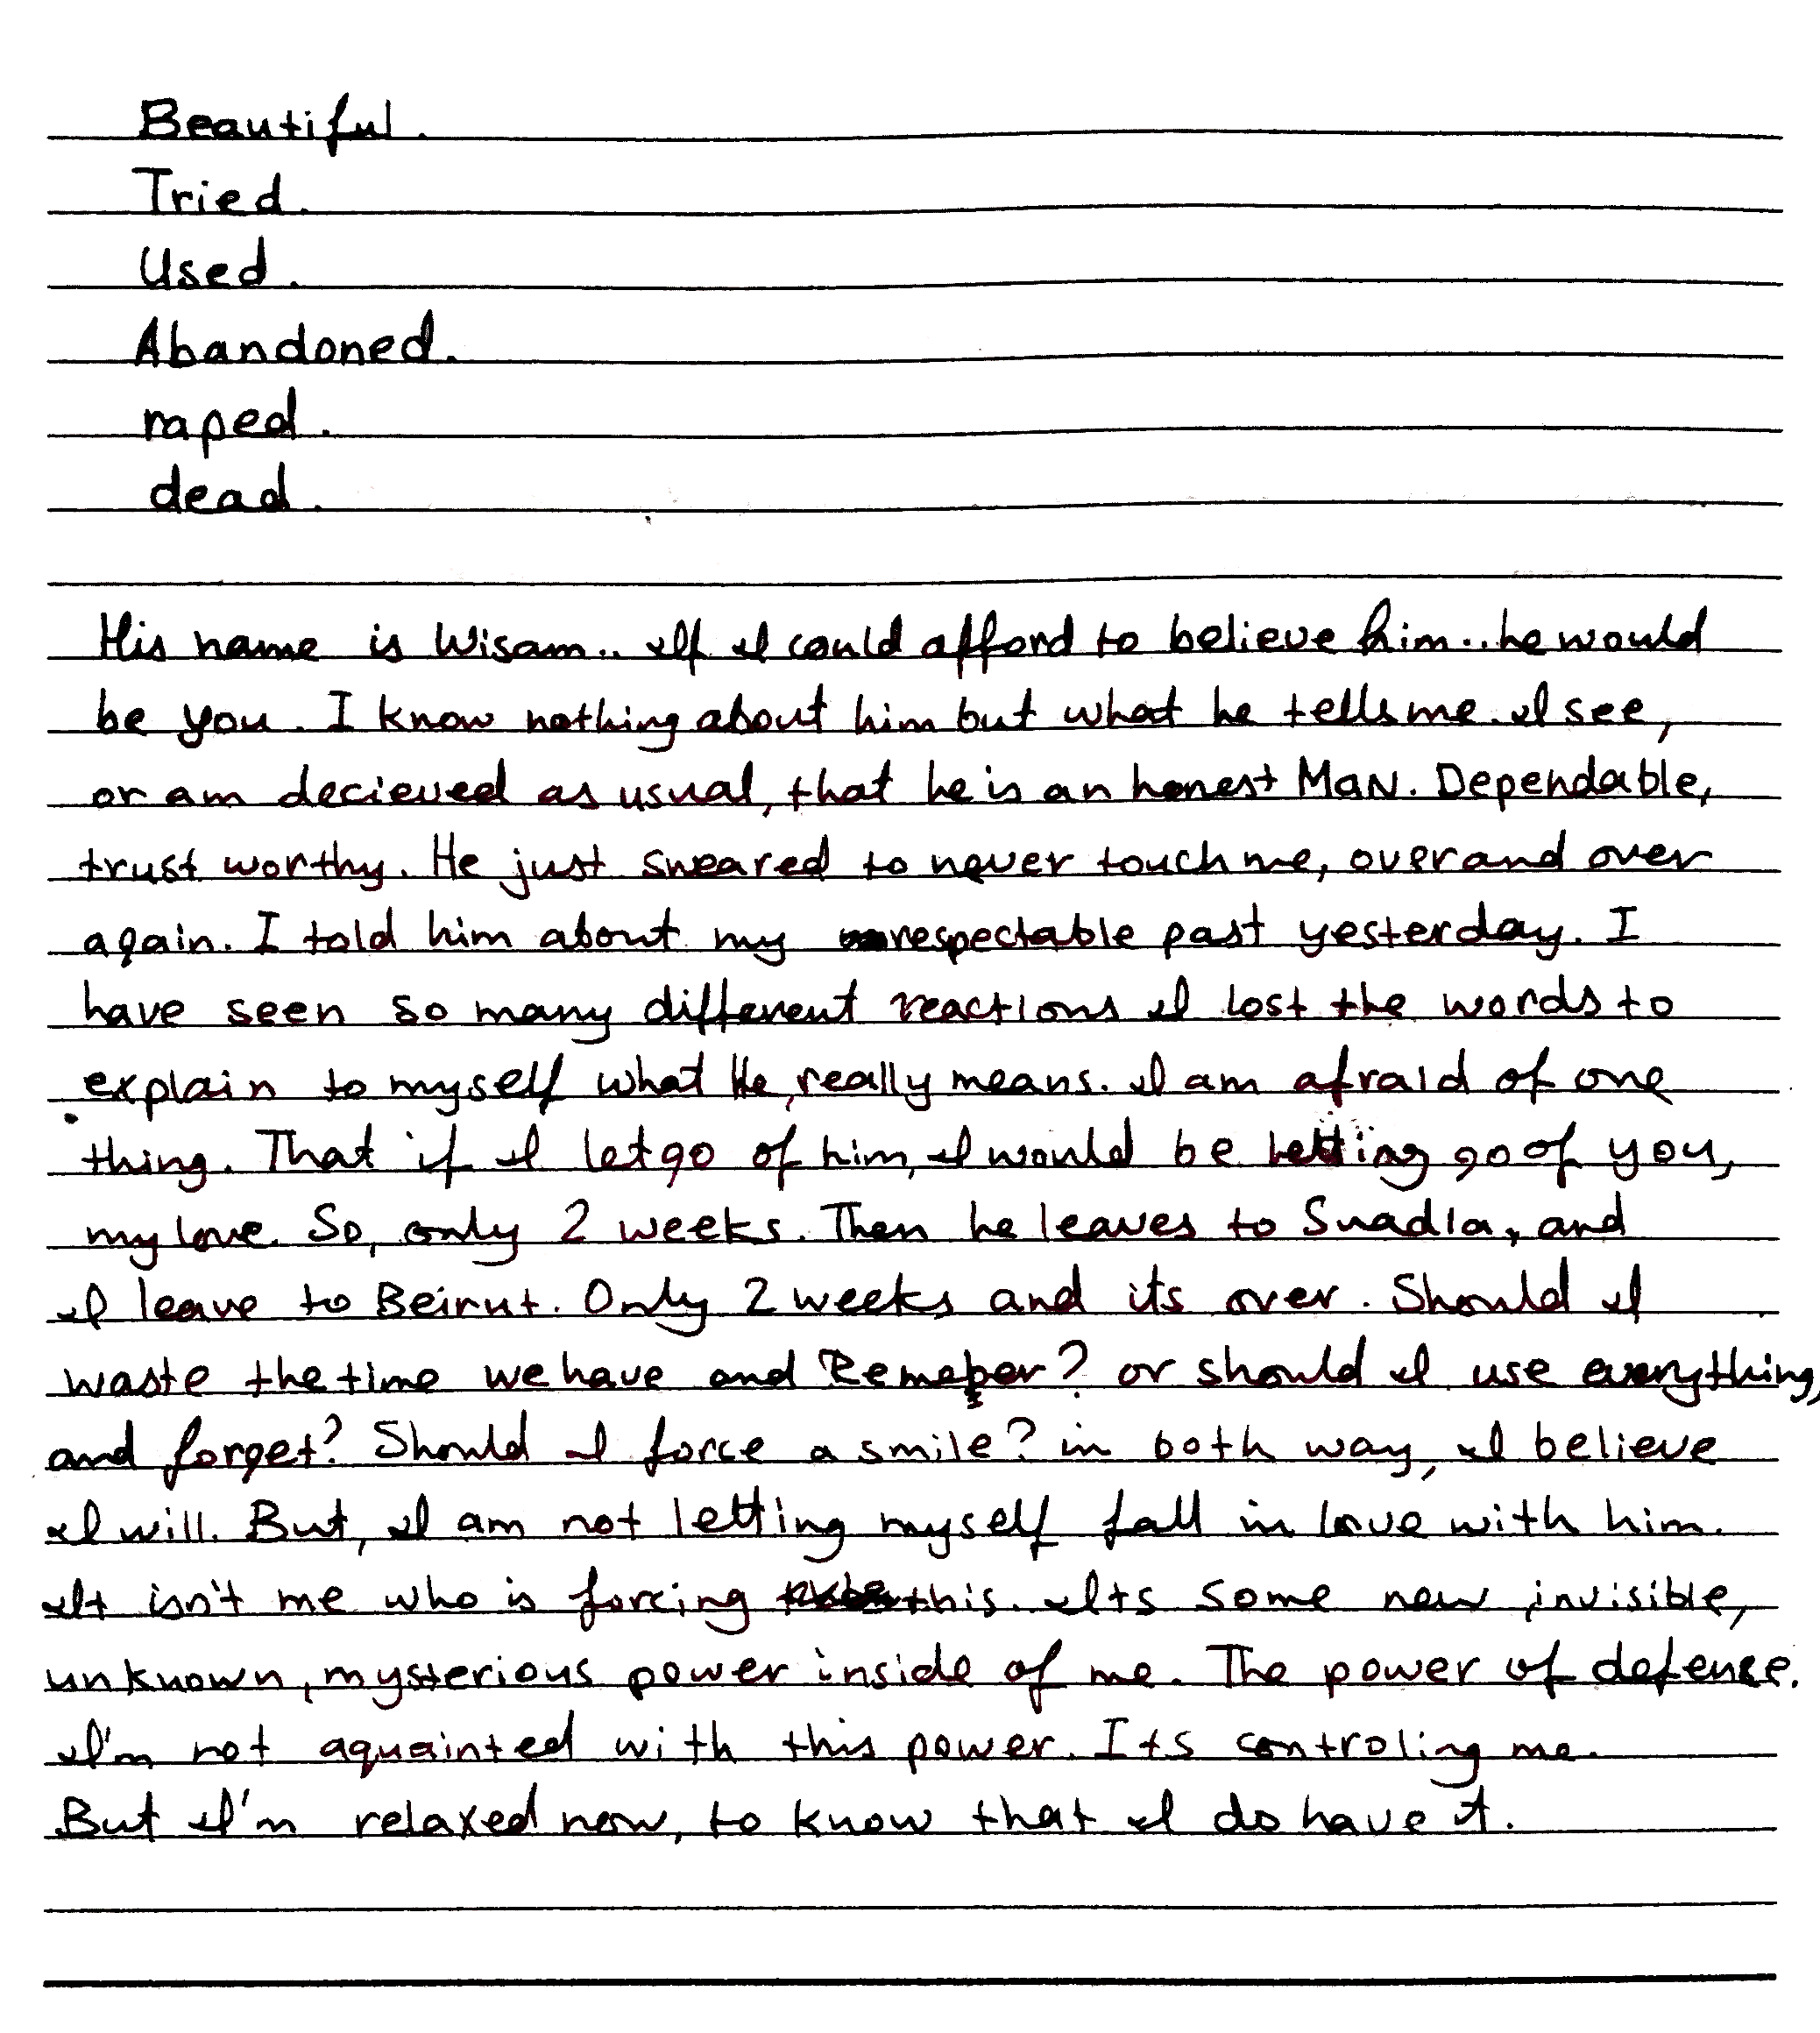 Beautiful.
Tried.
Used.
Abandoned.
raped.
dead.
His name is Wisam.. If I could afford to believe him.. he would
be you. I know nothing about him but what he tells me. I see,
or am decieved as usual, that he is an honest MaN. Dependable,
trust worthy. He just sweared to never touch me, over and over
again. I told him about my respectable past yesterday. I
have seen so many different reactions I lost the words to
explain to myself what He really means. I am afraid of one
thing. That if I let go of him, I would be letting go of you,
my love. So, only 2 weeks. Then he leaves to Suadia, and
I leave to Beirut. Only 2 weeks and its over. Should I
waste the time we have and Remeber? or should I use everything,
and forget? Should I force a smile? in both way, I believe
I will. But, I am not letting myself fall in love with him.
It isn't me who is forcing this. Its some new, invisible,
unknown, mysterious power inside of me. The power of defense.
I'm not aquainted with this power. Its controling me.
But I'm relaxed now, to know that I do have it.